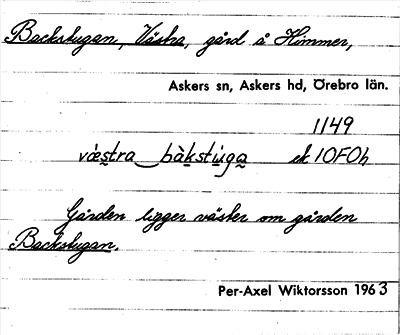 Backstugan, Västra, gård å Himmer,
Askers sn, Askers hd, Örebro län.
1149
væstra bàkstùga ek 10F0h
Gården ligger väster om gården
Backstugan.
Per-Axel Wiktorsson 1963